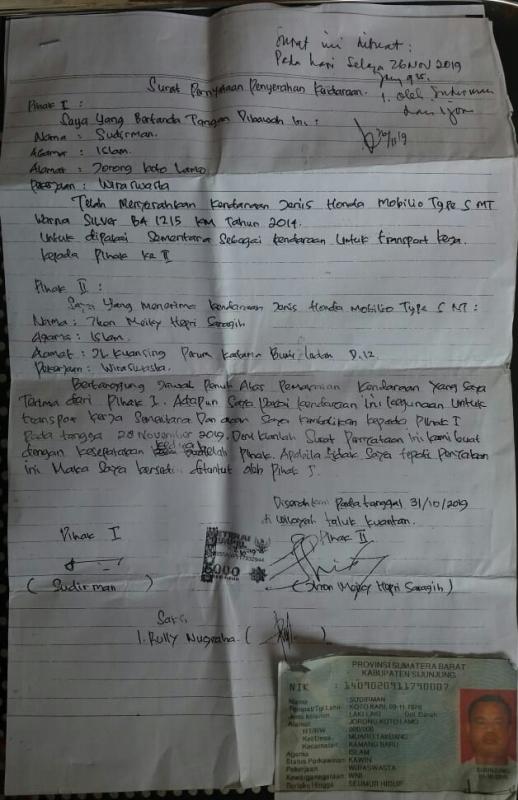 Surat ini dibuat :
Pada hari Selasa 26 Nov 2019
1. oleh Sudirman
dan
26/11/19
Surat Pernyataan Penyerahan Kendaraan.
Pihak I :
Saya Yang Bertanda Tangan Dibawah Ini :
Nama : Sudirman.
Agama : Islam.
Alamat : Jorong Koto Lamo
Pekerjaan : Wiraswasta
Telah Menyerahkan Kendaraan Jenis Honda Mobilio Type S MT
Warna SILVER BA 1215 KM Tahun 2014.
Untuk dipakai Sementara Sebagai Kendaraan Untuk transport kerja.
kepada Pihak Ke II
Pihak II :
Saya Yang Menerima Kendaraan Jenis Honda Mobilio Type S MT :
Nama : Moicy Hepri Saragih
Agama : Islam.
Alamat : JL Kuansing Perum D.12
Pekerjaan : Wiraswasta.
Bertanggung Jawab Penuh Atas Pemakaian Kendaraan Yang Saya
Terima dari Pihak I. Adapun Saya Kendaraan ini Untuk
transpor kerja Sementara Dan akan Saya kembalikan kepada Pihak I
Pada tangga 28 November 2019. Demikianlah Surat Pernyataan Ini kami buat
dengan kesepakatan kedua belah Pihak. Apabila tidak Saya tepati Pernyataan
ini Maka Saya bersedia dituntut oleh Pihak I.
Diserahkan Pada tanggal 31/10/2019
di wilayah taluk kuantan.
Pihak I
Pihak II
6000
( Sudirman )
( Moicy Hepri Saragih )
Saksi
1. Rully Nugraha. ( )
PROVINSI SUMATERA BARAT
KABUPATEN SIJUNJUNG
NIK : 1409020911790007
Nama : SUDIRMAN
Tempat/Tgl Lahir : KOTO BARU, 09-11-1979
Jenis Kelamin : LAKI-LAKI Gol. Darah
Alamat : JORONG KOTO LAMO
RT/RW : 000/000
Kel/Desa : MUARO TAKUANG
Kecamatan : KAMANG BARU
Agama : ISLAM
Status Perkawinan : KAWIN
Pekerjaan : WIRASWASTA
Kewarganegaraan : WNI
Berlaku Hingga : SEUMUR HIDUP
SIJUNJUNG